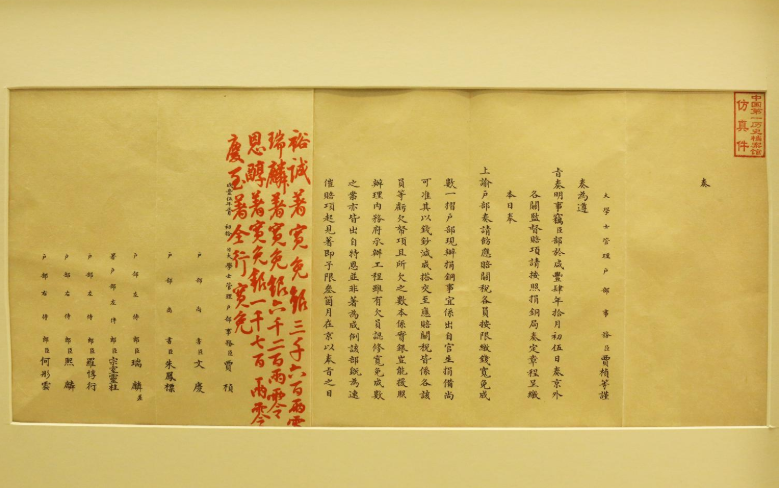 中国第一历史档案馆
仿真件
奏
大學士管理戶部事務臣賈楨等謹
奏為遵
旨奏明事竊臣部於咸豐肆年拾月初伍日奏京外
各關監督賠項請按照捐銅局奏定章程呈繳
本日奉
上諭戶部奏請飭應賠關稅各員按限繳錢寬免成
數一摺戶部現辦捐銅事宜係出自官生捐備尚
可准其以錢鈔減成搭交至應賠關稅皆係各該
員等虧欠帑項且所欠之數本係實銀豈能援照
辦理內務府承辦工程雖有欠員認修寬免成數
之案亦皆出自特恩並非著為成例該部既為速
催賠項起見著即予限叁箇月在京以奉旨之日
裕誠著寬免銀三千六百兩零
瑞麟著寬免銀六千二百兩零
恩醇著寬免銀一千七百兩零
慶至著全行寬免
咸豐伍年 初拾 日大學士管理戶部事務臣賈楨
戶部尚書臣文慶
戶部尚書臣朱鳳標
戶部左侍郎臣瑞麟
署戶部左侍郎臣宗室靈桂
戶部右侍郎臣羅惇衍
戶部右侍郎臣熙麟
戶部右侍郎臣何彤雲